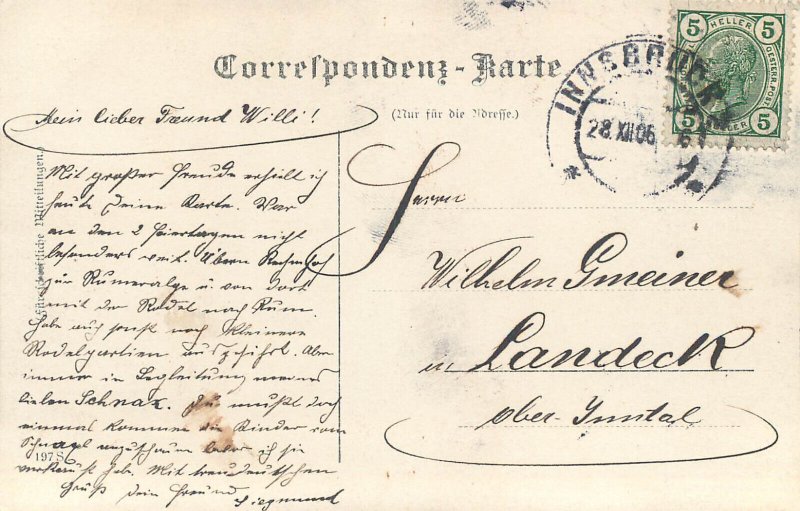 Correspondenz-Karte
(Nur für die Adresse.)
5 HELLER 5
OESTERR. POST
5 HELLER 5
INNSBRUCK
28.XII.06
Für schriftliche Mitteilungen.
Mein lieber Freund Willi!
Mit großer Freude erhielt ich
heute Deine Karte. War
an den 2 Feiertagen nicht
besonders weit. Übern
zur Rumeralpe u. von dort
mit der Rodel nach Rum.
Habe auch sonst noch kleinere
Rodelpartien ausgeführt. Aber
immer in Begleitung meines
lieben Schnax. Du mußt doch
einmal kommen die Kinder vom
Schnaxl anzuschauen bevor ich sie
verkauft habe. Mit treudeutschen
Gruß Dein Freund
Siegmund
197 S
Herrn
Wilhelm Gmeiner
in Landeck
Ober-Inntal